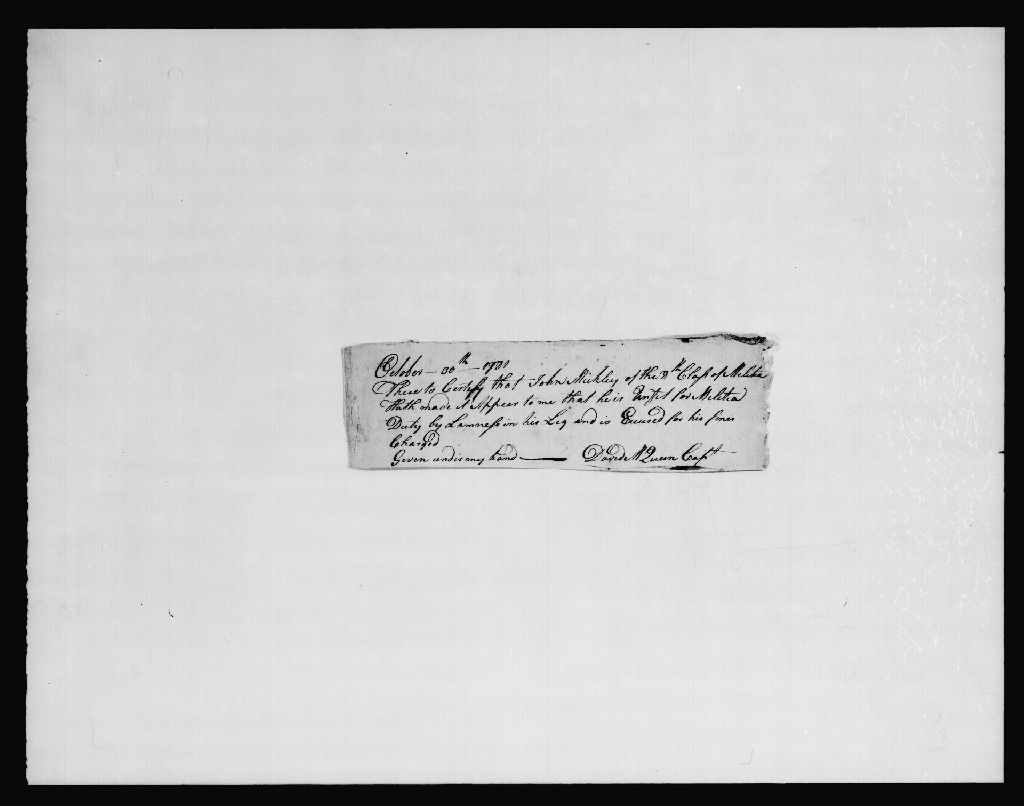 October — 30th — 1781
These to Certify that John Mickley of the 8th Class of Melitia
Hath made it Appear to me that he is Unfit for Melitia
Duty by Lamness in his Leg and is Excused for his fines
Charged
Given under my hand ——— David McQueen Capt